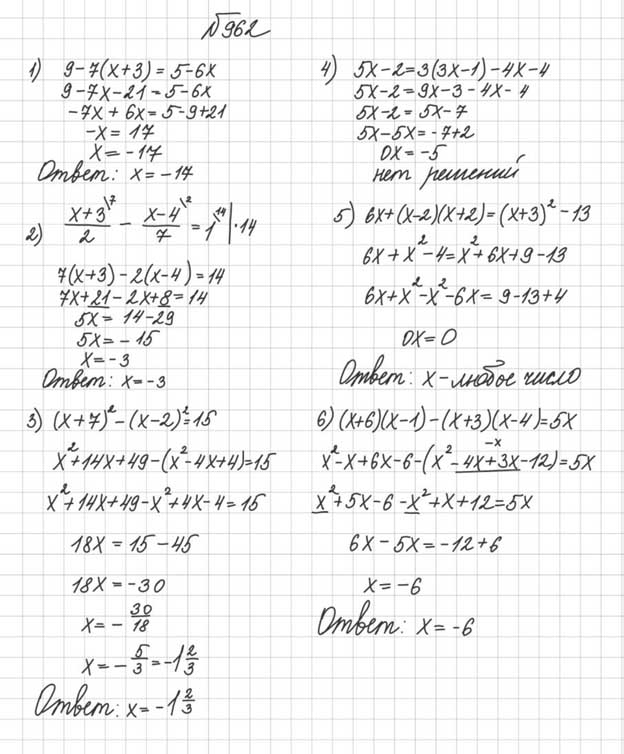 №962
1) 9-7(x+3) = 5-6x
9-7x-21 = 5-6x
-7x + 6x = 5-9+21
-x = 17
x = -17
Ответ: x = -17
2) (x+3)\7/2 - (x-4)\2/7 = 1\14 | ·14
7(x+3) - 2(x-4) = 14
7x+21-2x+8 = 14
5x = 14-29
5x = -15
x = -3
Ответ: x = -3
3) (x+7)² - (x-2)² = 15
x²+14x+49-(x²-4x+4)=15
x²+14x+49-x²+4x-4=15
18x = 15-45
18x = -30
x = - 30/18
x = - 5/3 = -1 2/3
Ответ: x = -1 2/3
4) 5x-2=3(3x-1)-4x-4
5x-2=9x-3-4x-4
5x-2=5x-7
5x-5x=-7+2
0x=-5
нет решений
5) 6x+(x-2)(x+2)=(x+3)²-13
6x+x²-4=x²+6x+9-13
6x+x²-x²-6x=9-13+4
0x=0
Ответ: x-любое число
6) (x+6)(x-1)-(x+3)(x-4)=5x
-x
x²-x+6x-6-(x²-4x+3x-12)=5x
x²+5x-6-x²+x+12=5x
6x-5x=-12+6
x=-6
Ответ: x=-6